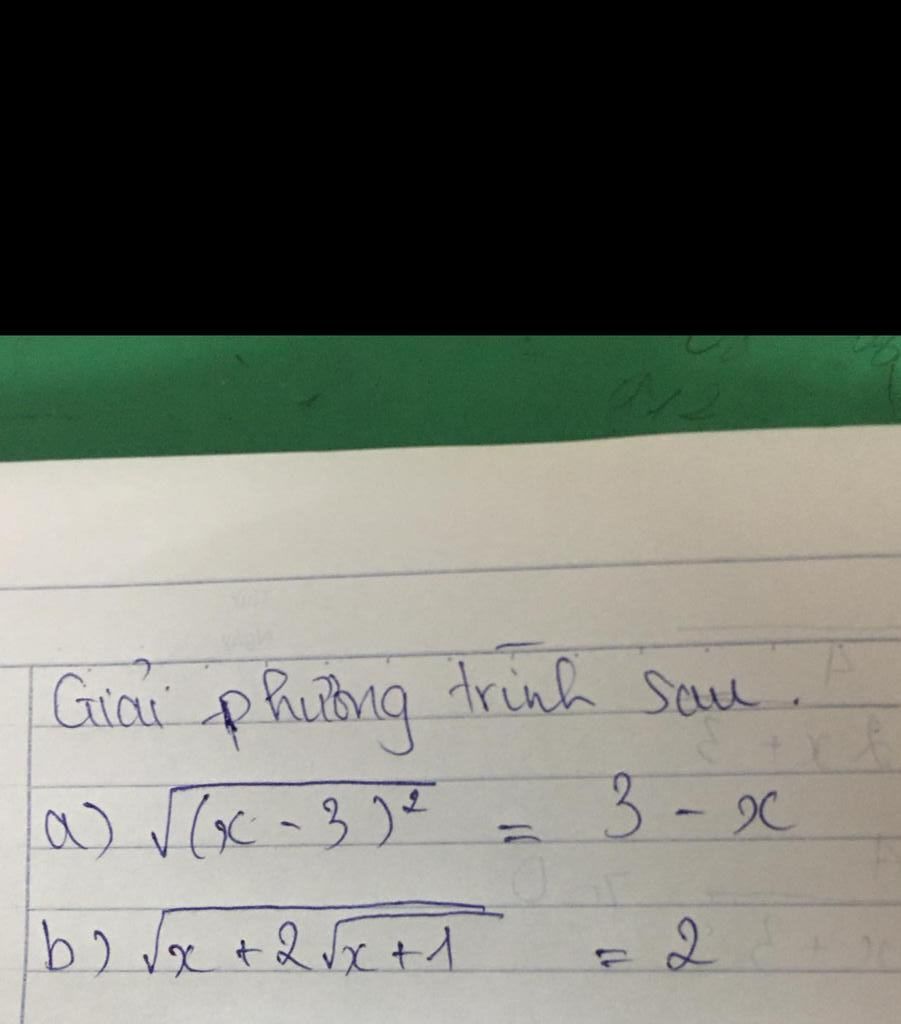 Giải phường trình sau.
a) √(x - 3)² = 3 - x
b) √x + 2√x + 1 = 2